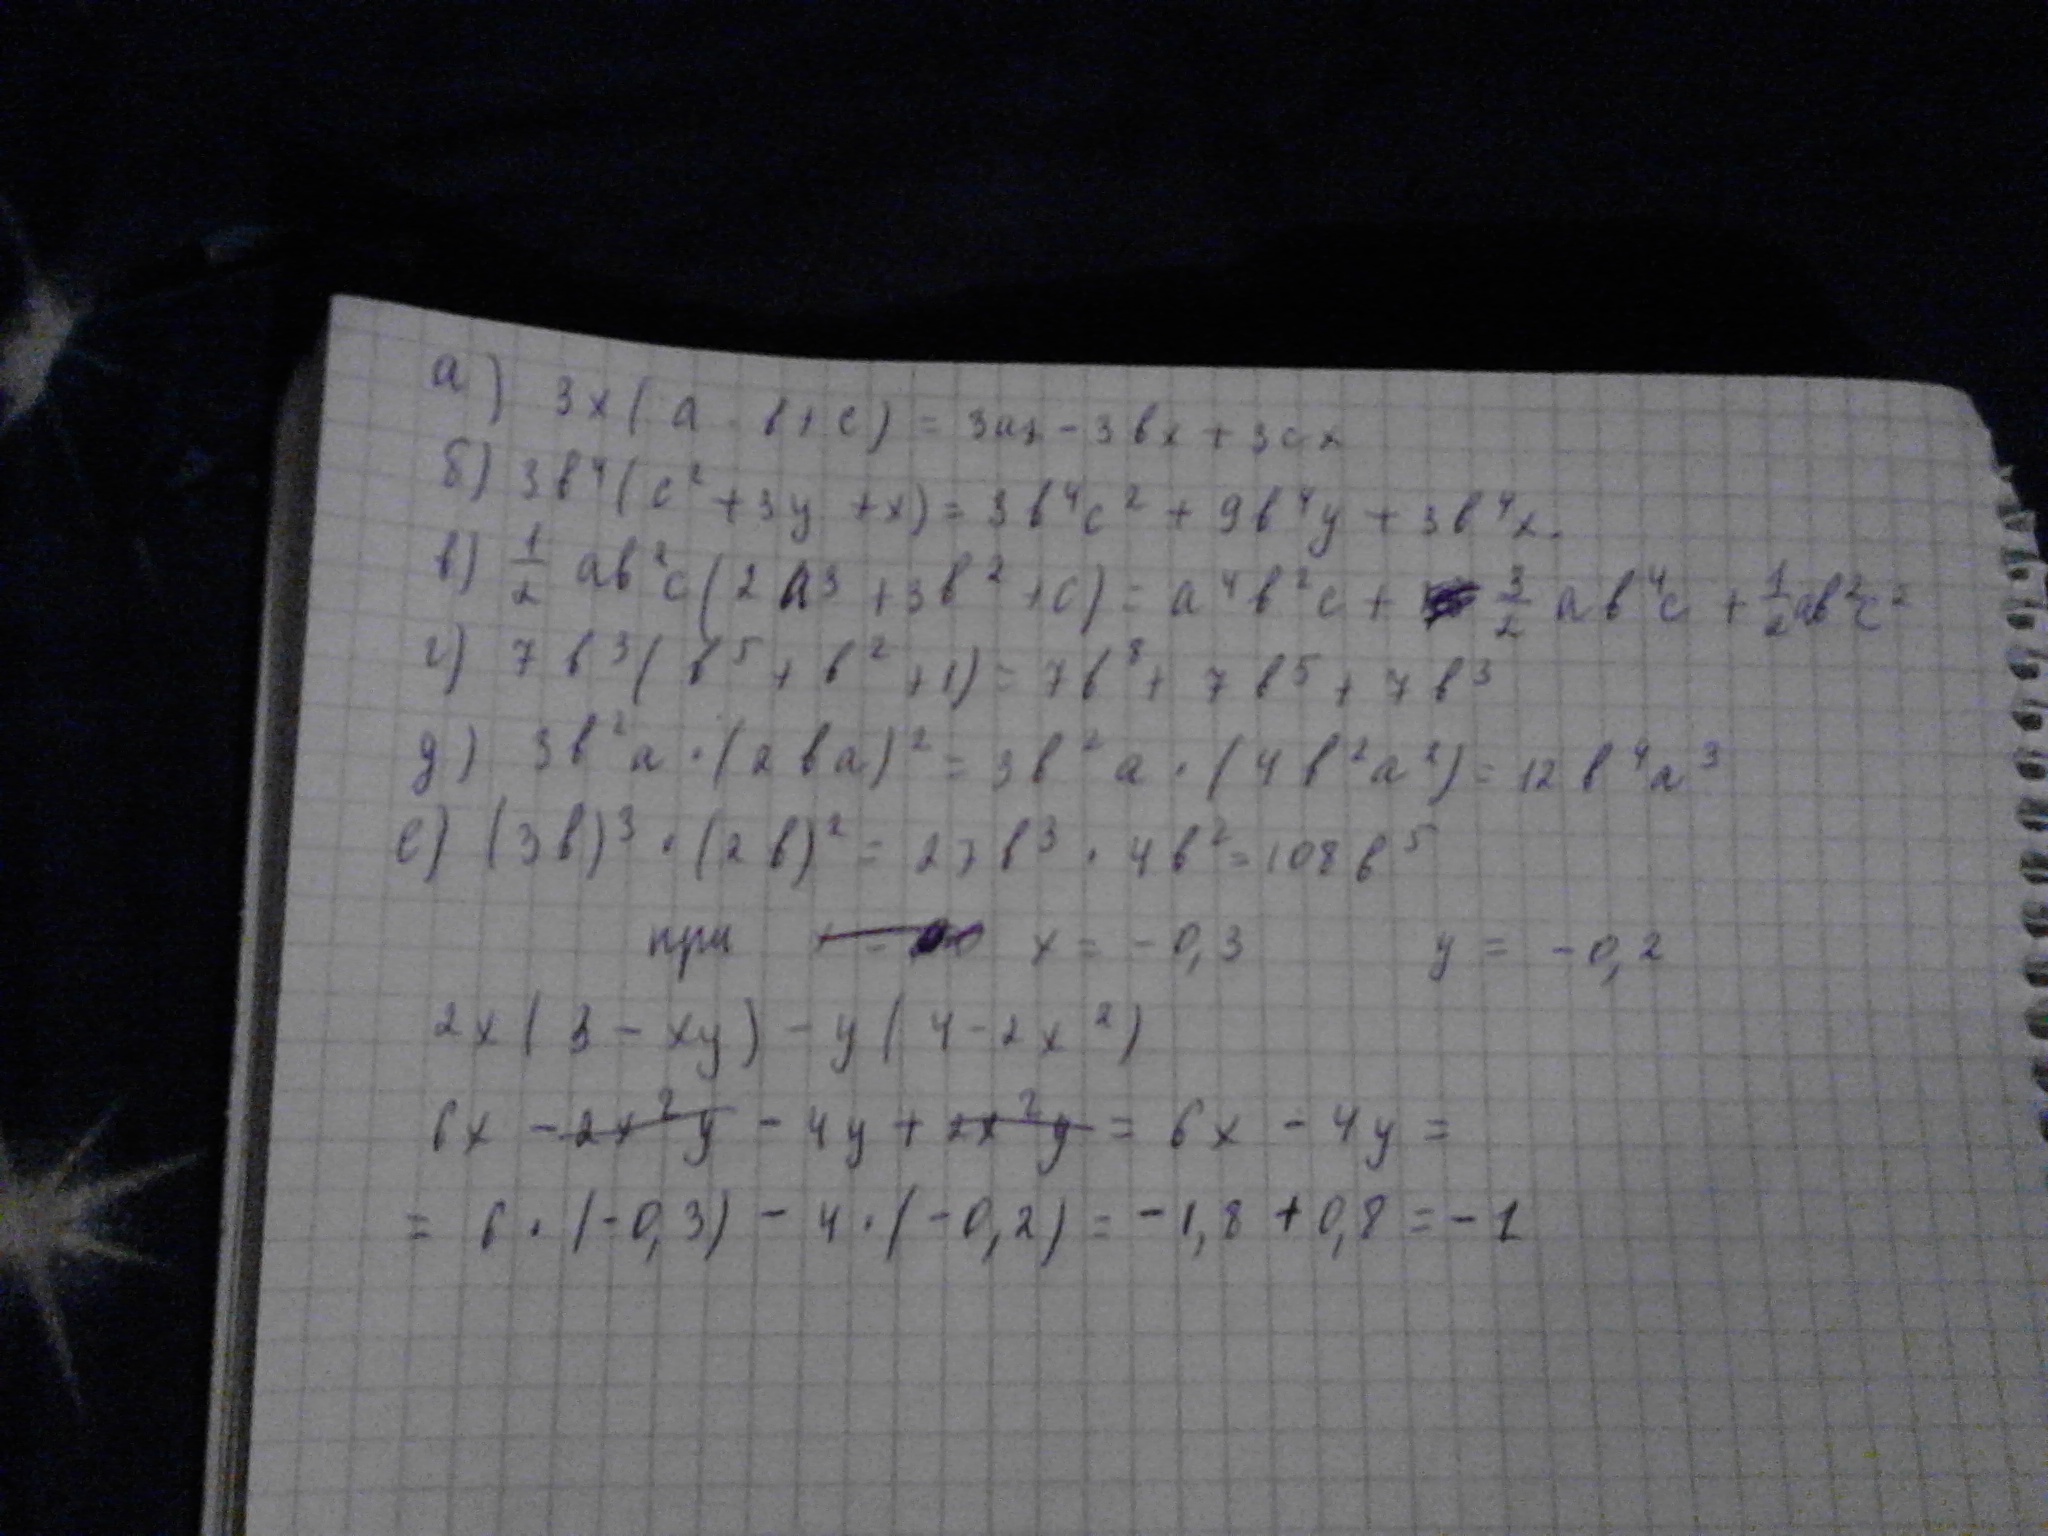 а) 3x(a - b+c) = 3ax - 3bx + 3cx
б) 3b⁴(c²+3y +x) = 3b⁴c² + 9b⁴y + 3b⁴x.
в) 1/2 ab²c(2a³ + 3b² + c) = a⁴b²c + 3/2 ab⁴c + 1/2 ab²c²
г) 7b³(b⁵ + b² + 1) = 7b⁸ + 7b⁵ + 7b³
д) 3b²a · (2ba)² = 3b²a · (4b²a²) = 12b⁴a³
е) (3b)³ · (2b)² = 27b³ · 4b² = 108b⁵
при x = -0,3 y = -0,2
2x(3 - xy) - y(4 - 2x²)
6x - 2x²y - 4y + 2x²y = 6x - 4y =
= 6 · (-0,3) - 4 · (-0,2) = -1,8 + 0,8 = -1